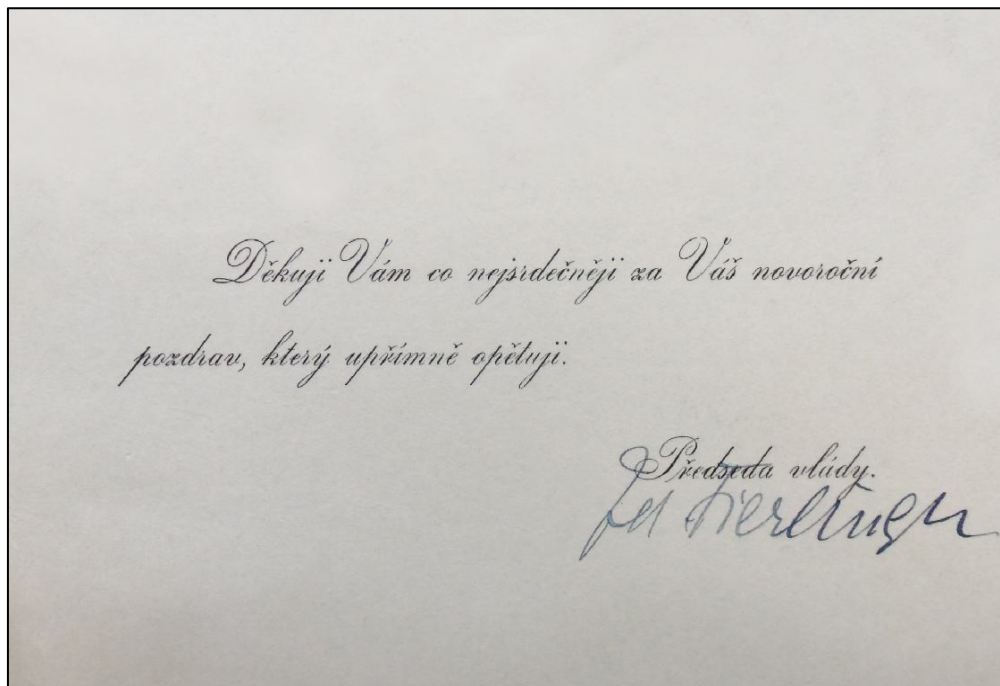 Děkuji Vám co nejsrdečněji za Váš novoroční
pozdrav, který upřímně opětuji.
Předseda vlády.
Zd Fierlinger